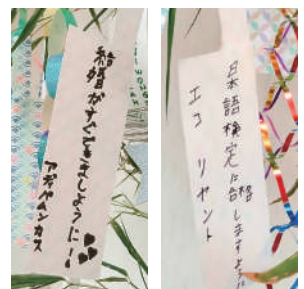 結婚がすぐできましように！
日本語検定に合格しますように
エコ リヤント